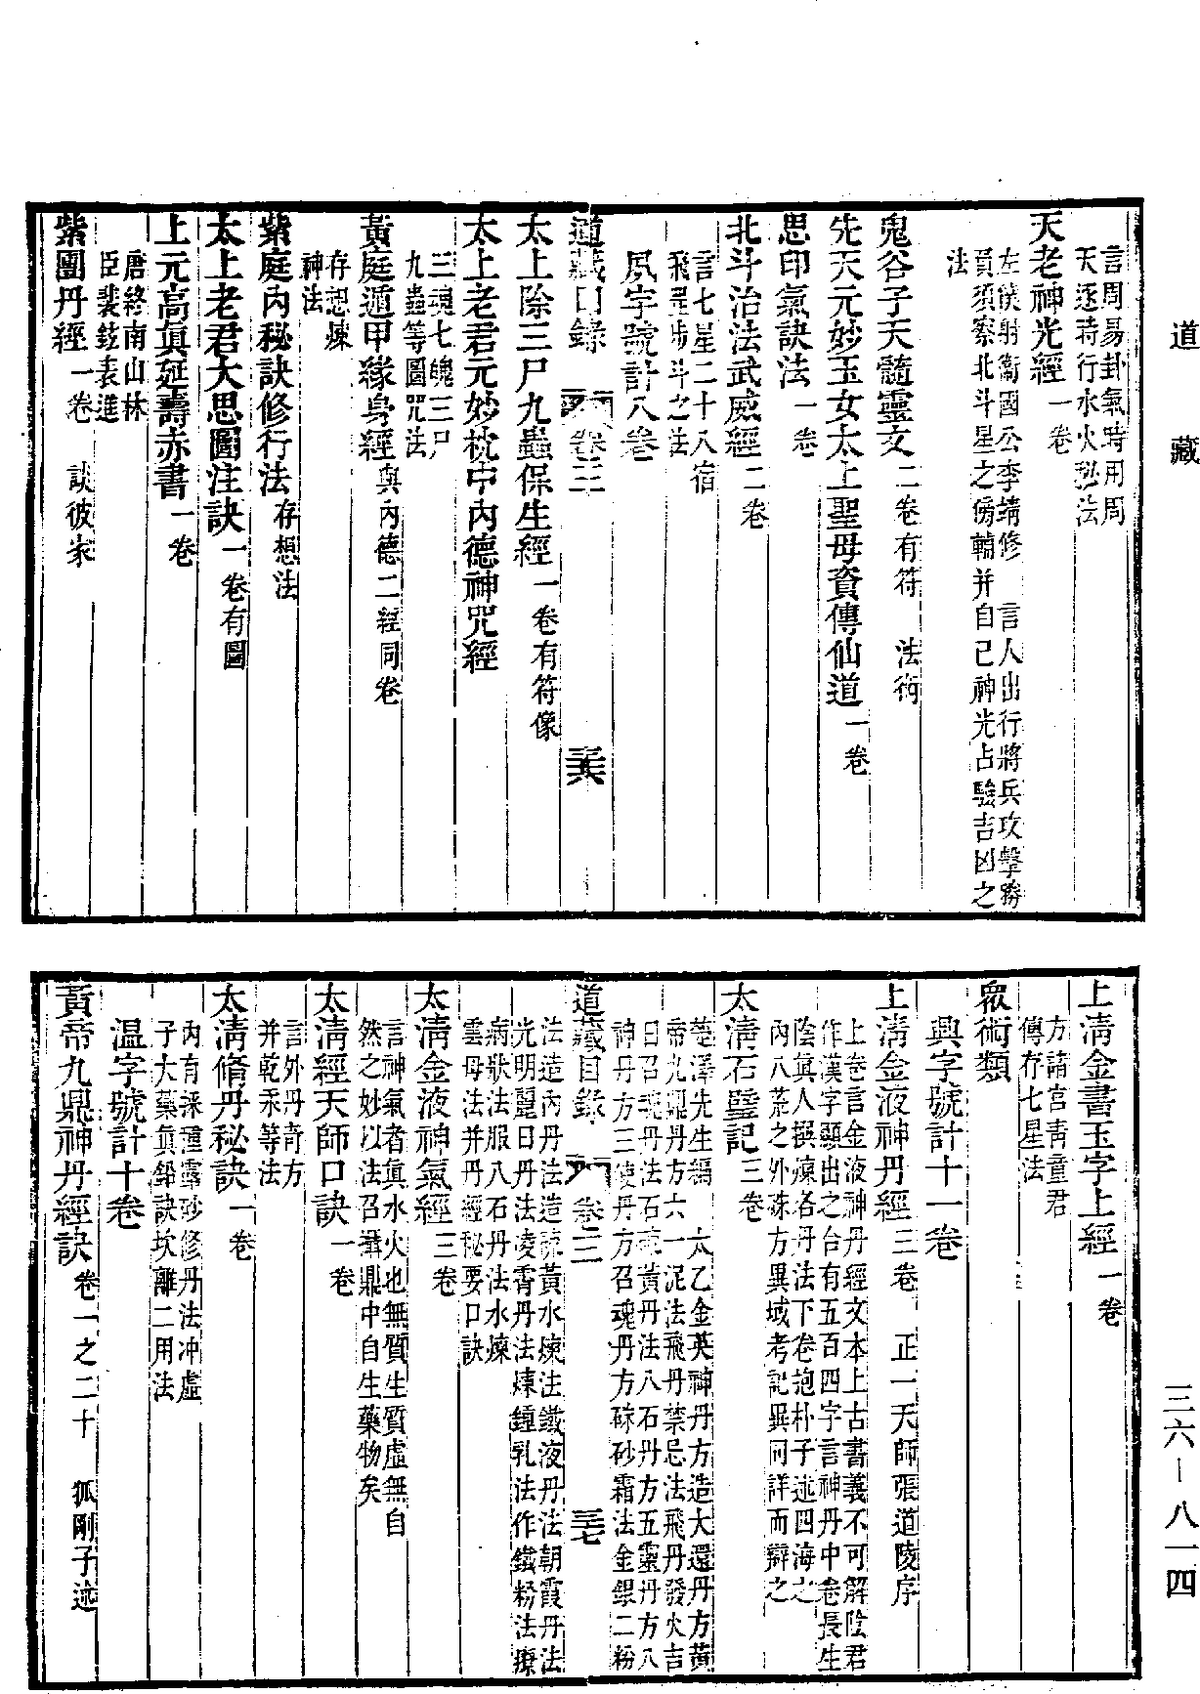 道藏
言周易卦氣時用周
天逐時行水火秘法
天老神光經一卷
左僕射衛國公李靖修　言人出行將兵攻擊勝
負須察北斗星之傍輔并自己神光占驗吉凶之
法
鬼谷子天髓靈文二卷有符　法術
先天元妙玉女太上聖母資傳仙道一卷
思印氣訣法一卷
北斗治法武威經二卷
言七星二十八宿
飛罡步斗之法
夙字號計八卷
道藏目錄　卷三　三六
太上除三尸九蟲保生經一卷有符像
太上老君元妙枕中內德神咒經
三魂七魄三尸
九蟲等圖咒法
黃庭遁甲緣身經與內德二經同卷
存想煉
神法
紫庭內秘訣修行法存想法
太上老君大思圖注訣一卷有圖
上元高眞延壽赤書一卷
唐終南山林
臣裴鉉表進
紫團丹經一卷　談彼家
上清金書玉字上經一卷
方諸宮青童君
傳存七星法
眾術類
興字號計十一卷
上清金液神丹經三卷　正一天師張道陵序
上卷言金液神丹經文本上古書義不可解陰君
作漢字顯出之合有五百四字言神丹中卷長生
陰眞人撰煉各丹法下卷抱朴子述四海之
內八荒之外珠方異域考記異同詳而辯之
太清石壁記三卷
楚澤先生編　太乙金英神丹方造大還丹方黃
帝九鼎丹方六一泥法飛丹禁忌法飛丹發火吉
日召魂丹法石硫黃丹法八石丹方五靈丹方八
神丹方三使丹方召魂丹方硃砂霜法金銀二粉
道藏目錄　卷三　三七
法造內丹法造硫黃水煉法鐵液丹法朝霞丹法
光明麗日丹法凌霄丹法煉鍾乳法作鐵粉法療
病狀法服八石丹法水煉
雲母法并丹經秘要口訣
太清金液神氣經三卷
言神氣者眞水火也無質生質虛無自
然之妙以法召攝鼎中自生藥物矣
太清經天師口訣一卷
言外丹奇方
并乾汞等法
太清脩丹秘訣一卷
內有採種露砂修丹法冲虛
子大藥眞鉛訣坎離二用法
温字號計十卷
黃帝九鼎神丹經訣卷一之二十　狐剛子述
三六—八一四